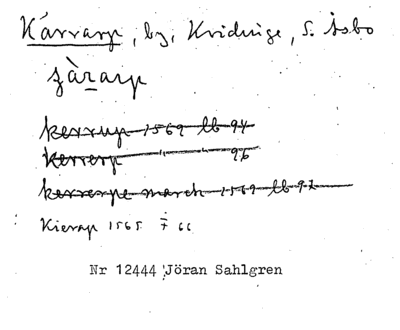 Kärrarp, by, Kvidinge, S. Åsbo
żàrarp
kerrup 1569 lb 94
kerrerp " " 96
kerrerpe march 1569 lb 97
Kierap 1565 7 66
Nr 12444 Jöran Sahlgren